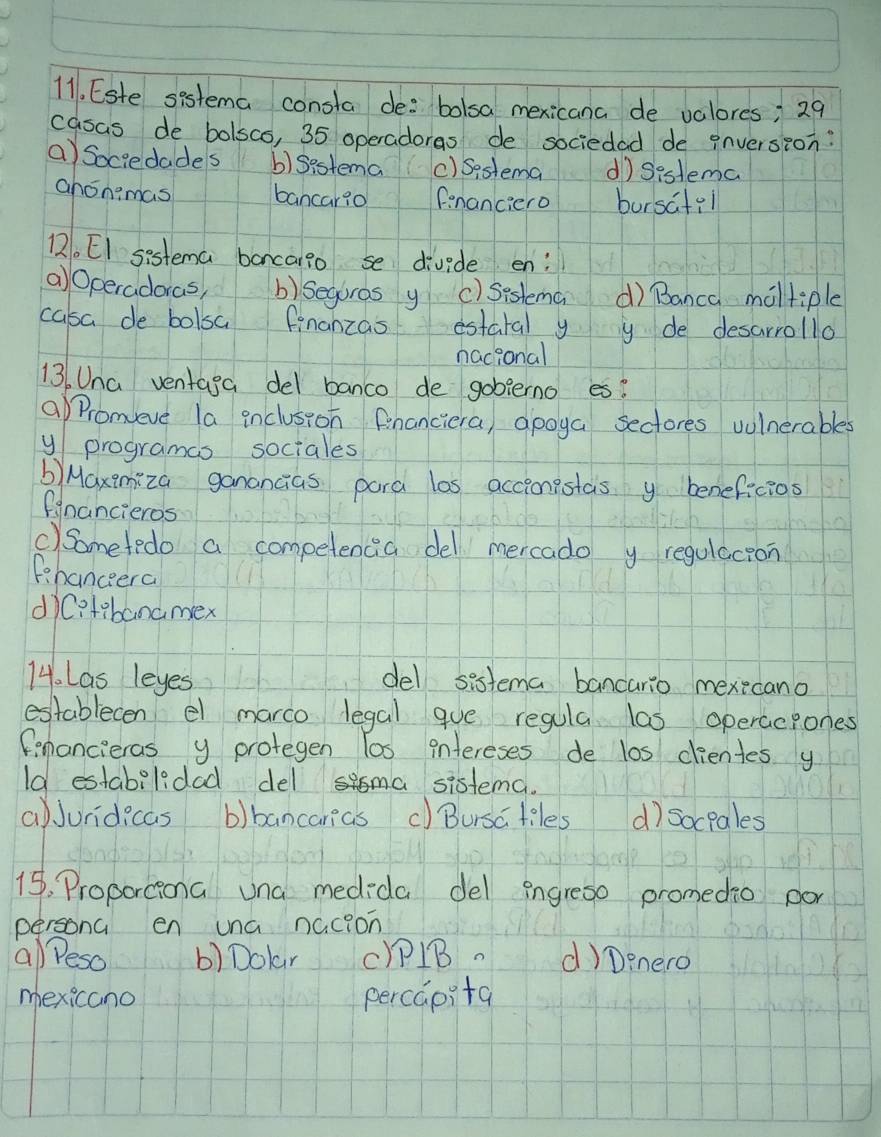 11. Este sistema consta de: bolsa mexicana de valores; 29
casas de bolsas, 35 operadoras de sociedad de inversión:
a) Sociedades b) Sistema c) Sistema d) Sistema
anónimas bancario financiero bursátil
12. El sistema bancario se divide en:
a) Operadoras, b) Seguros y c) Sistema d) Banca múltiple
casa de bolsa finanzas estatal y y de desarrollo
nacional
13. Una ventaja del banco de gobierno es:
a) Promueve la inclusión financiera, apoya sectores vulnerables
y programas sociales
b) Maximiza ganancias para los accionistas y beneficios
financieros
c) Sometido a competencia del mercado y regulación
financiera
d) Citibanamex
14. Las leyes del sistema bancario mexicano
establecen el marco legal que regula las operaciones
financieras y protegen los intereses de los clientes y
la estabilidad del sisma sistema.
a) Jurídicas b) bancarias c) Bursátiles d) Sociales
15. Proporciona una medida del ingreso promedio por
persona en una nación
a) Peso b) Dolar c) PIB d) Dinero
mexicano percápita